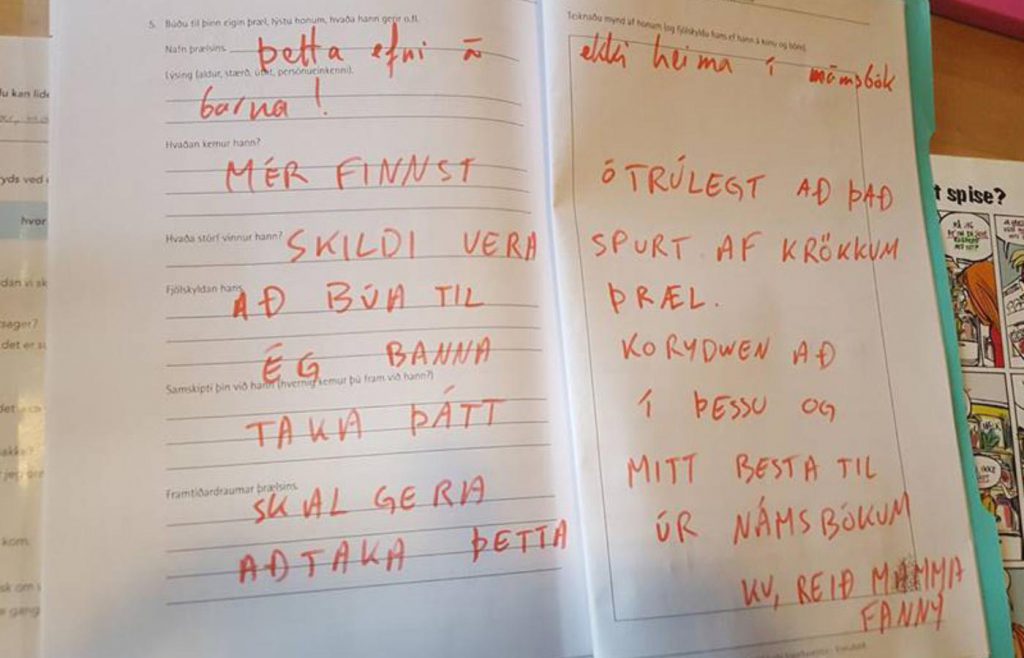 5. Búðu til þinn eigin þræl, lýstu honum, hvaða hann gerir o.fl.
Teiknaðu mynd af honum (og fjölskyldu hans ef hann á konu og börn).
Nafn þrælsins.
Þetta efni á ekki heima í námsbók
Lýsing (aldur, stærð, útlit, persónueinkenni).
barna!
Hvaðan kemur hann?
MÉR FINNST ÓTRÚLEGT AÐ ÞAÐ
Hvaða störf vinnur hann?
SKILDI VERA SPURT AF KRÖKKUM
Fjölskyldan hans.
AÐ BÚA TIL ÞRÆL.
ÉG BANNA KORYDWEN AÐ
Samskipti þín við hann (hvernig kemur þú fram við hann?)
TAKA ÞÁTT Í ÞESSU OG
Framtíðardraumar þrælsins.
SKAL GERA MITT BESTA TIL
AÐ TAKA ÞETTA ÚR NÁMSBÓKUM
KV, REIÐ MAMMA
FANNY
u kan lide
ryds ved
hvor
dan vi sk
sager?
det er
kom.
t spise?